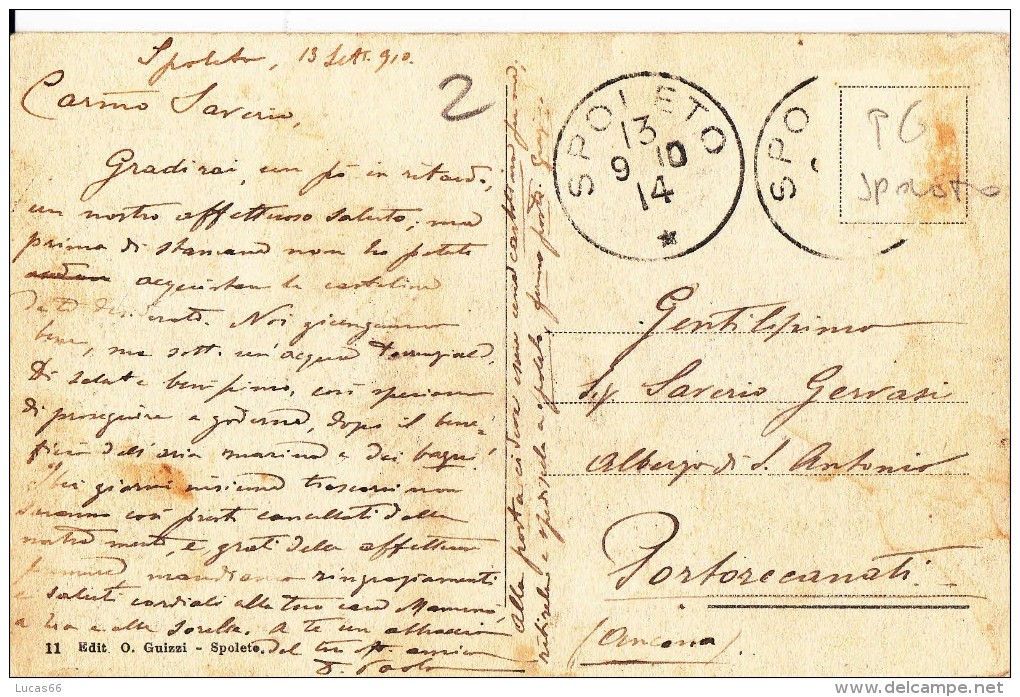 Spoleto, 13 Sett. 910.
2
Carmo Saverio,
Gradirai, un pò in ritardo,
un nostro affettuoso saluto; ma
prima di stamane non ho potuto
acquistare la cartolina
Noi giungemmo
bene, ma sott. un'acqua
Di salute benissimo, così speriamo
di proseguire a goderne, dopo il bene-
ficio dell'aria marina e dei bagni.
giorni insieme trascorsi non
saranno così presto cancellati dalla
nostra mente, e, grati della affettuosa
mandiamo ringraziamenti
e saluti cordiali alla tua cara Mamma,
a e alla sorella. A te un abbraccio
del tuo aff. amico
Paolo
11 Edit. O. Guizzi - Spoleto.
Alla posta ci dovr
ritirala e spediscila a Spoleto, fermo posta.
SPOLETO
13
9 10
14
SPO
PG
Gentilissimo
Sig Saverio Gervasi
Albergo di S. Antonio
Portorecanati.
(Ancona)
Lucas66
delcampe.net